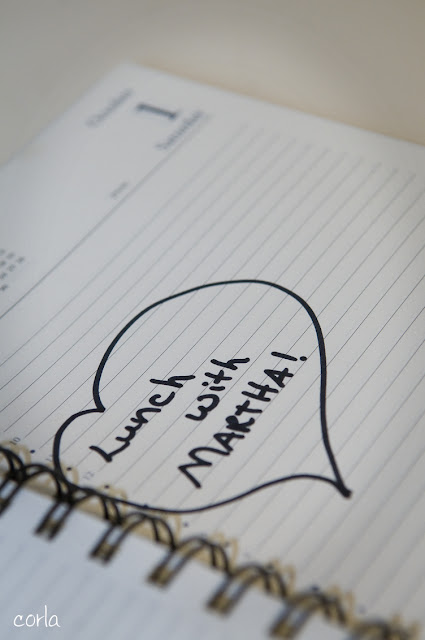 1
Lunch
with
MARTHA!
corla